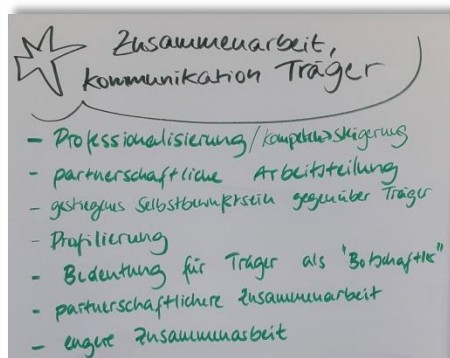 Zusammenarbeit,
Kommunikation Träger
- Professionalisierung/Kompetenzsteigerung
- partnerschaftliche Arbeitsteilung
- gestiegenes Selbstbewusstsein gegenüber Träger
- Profilierung
- Bedeutung für Träger als "Botschafter"
- partnerschaftlichere Zusammenarbeit
- engere Zusammenarbeit